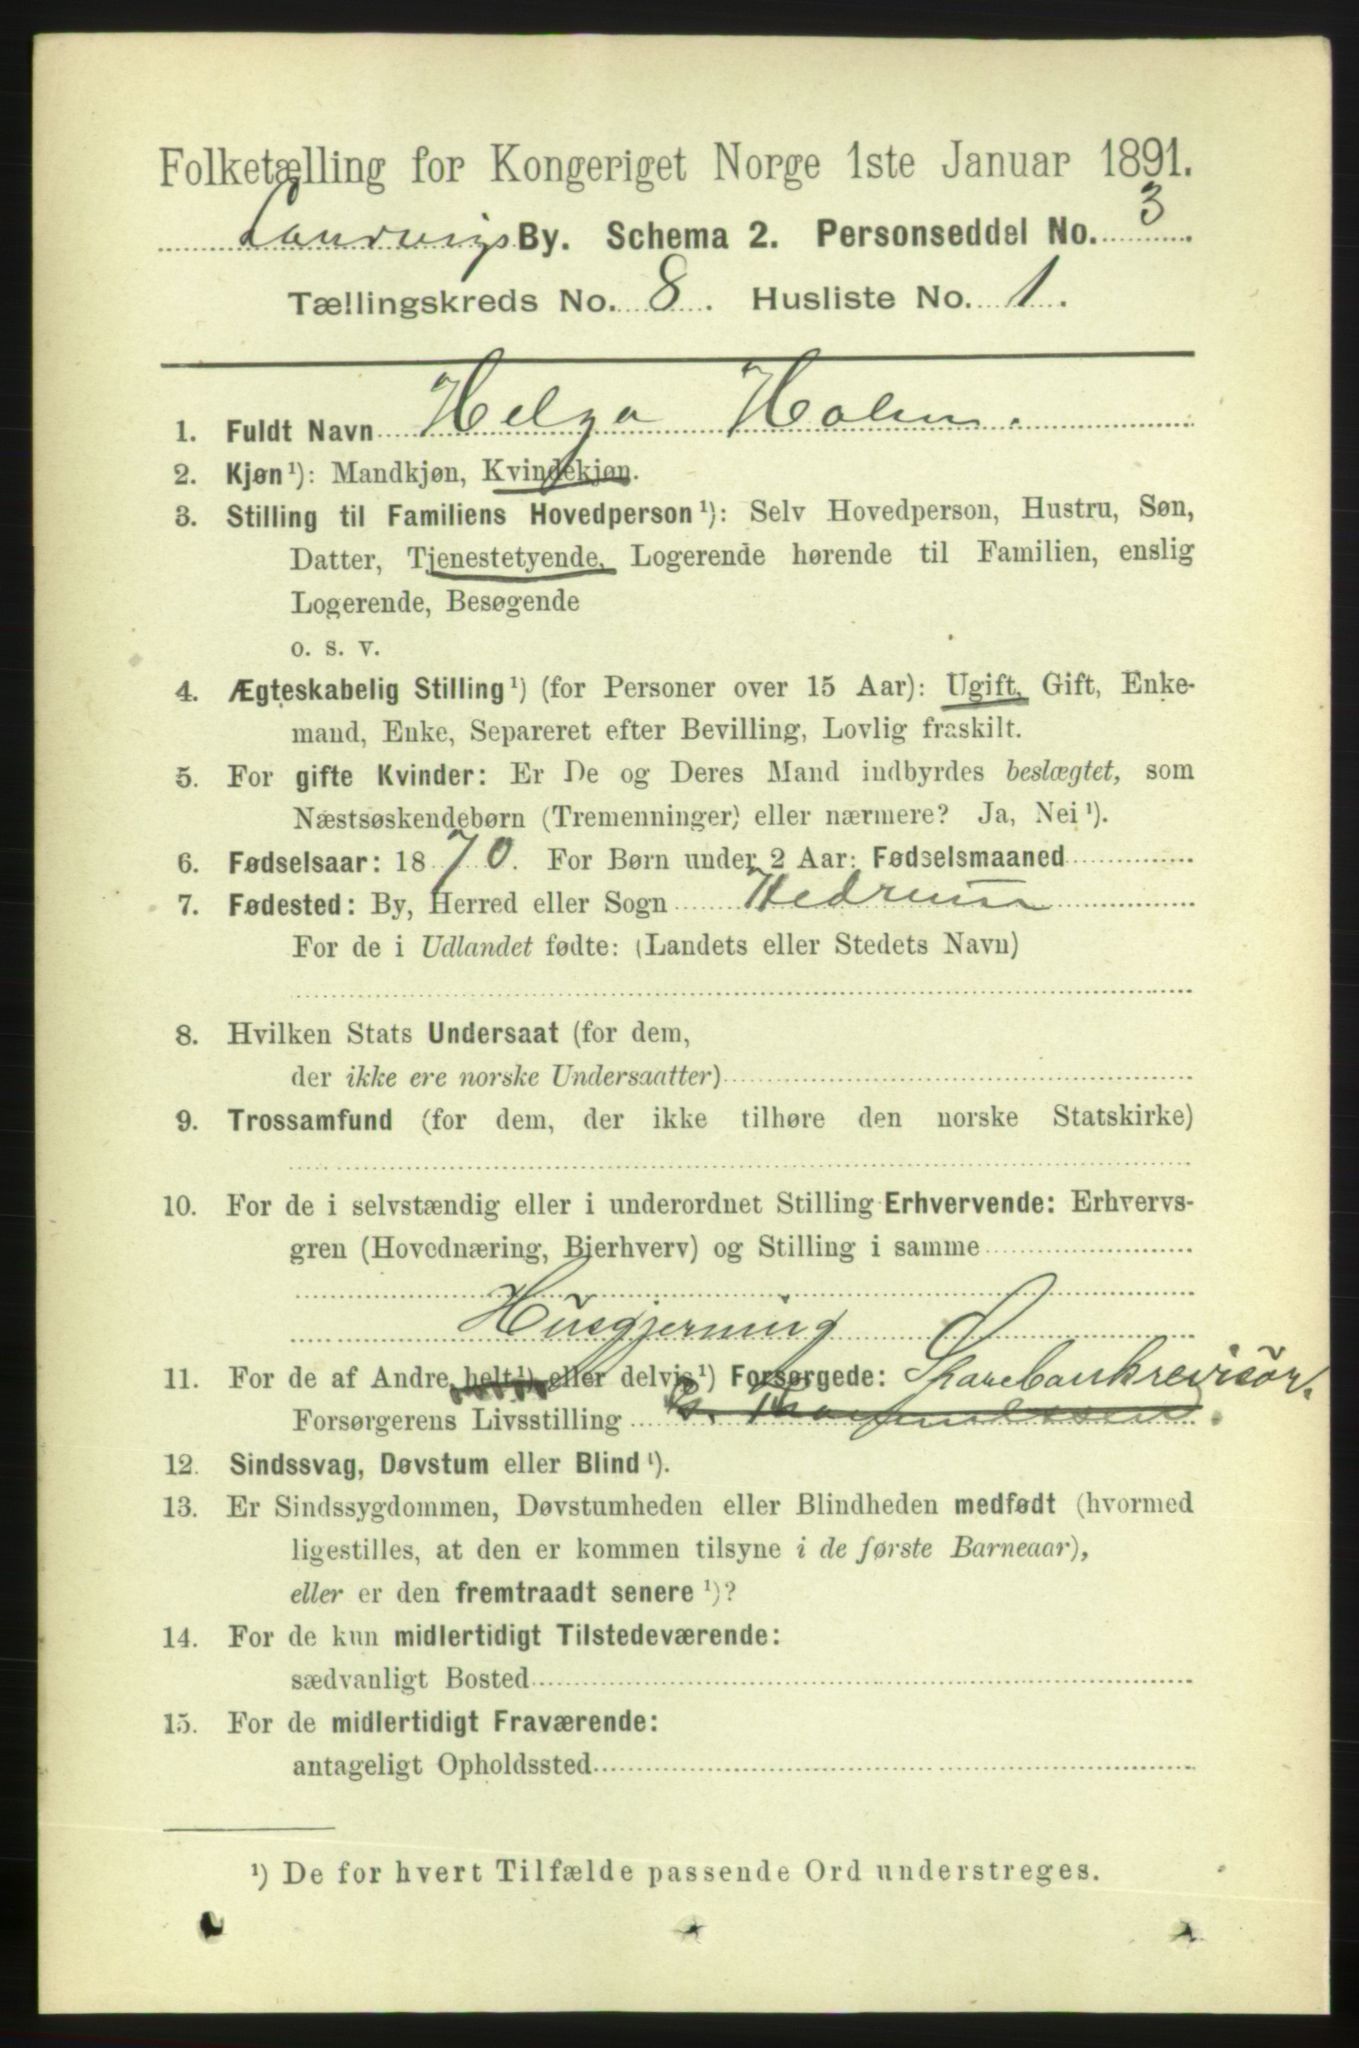 Folketælling for Kongeriget Norge 1ste Januar 1891.
Laurvigs By. Schema 2. Personseddel No. 3
Tællingskreds No. 8. Husliste No. 1.
1. Fuldt Navn Helga Holm.
2. Kjøn¹): Mandkjøn, Kvindekjøn.
3. Stilling til Familiens Hovedperson¹): Selv Hovedperson, Hustru, Søn,
Datter, Tjenestetyende, Logerende hørende til Familien, enslig
Logerende, Besøgende
o. s. v.
4. Ægteskabelig Stilling¹) (for Personer over 15 Aar): Ugift, Gift, Enke-
mand, Enke, Separeret efter Bevilling, Lovlig fraskilt.
5. For gifte Kvinder: Er De og Deres Mand indbyrdes beslægtet, som
Næstsøskendebørn (Tremenninger) eller nærmere? Ja, Nei¹).
6. Fødselsaar: 1870. For Børn under 2 Aar: Fødselsmaaned
7. Fødested: By, Herred eller Sogn Hedrum
For de i Udlandet fødte: (Landets eller Stedets Navn)
8. Hvilken Stats Undersaat (for dem,
der ikke ere norske Undersaatter)
9. Trossamfund (for dem, der ikke tilhøre den norske Statskirke)
10. For de i selvstændig eller i underordnet Stilling Erhvervende: Erhvervs-
gren (Hovednæring, Bierhverv) og Stilling i samme
Husgjerning
11. For de af Andre helt¹) eller delvis¹) Forsørgede: Sparebankrevisør.
Forsørgerens Livsstilling
12. Sindssvag, Døvstum eller Blind¹).
13. Er Sindssygdommen, Døvstumheden eller Blindheden medfødt (hvormed
ligestilles, at den er kommen tilsyne i de første Barneaar),
eller er den fremtraadt senere¹)?
14. For de kun midlertidigt Tilstedeværende:
sædvanligt Bosted
15. For de midlertidigt Fraværende:
antageligt Opholdssted
¹) De for hvert Tilfælde passende Ord understreges.